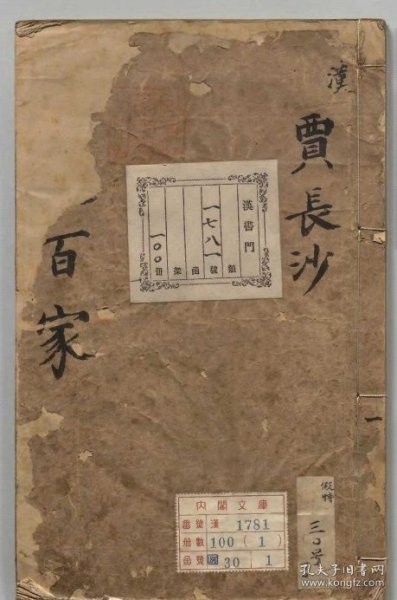 漢
賈長沙
百家
漢書門
類
一七八一號
函
架
一〇〇冊
一
假特
三〇号
内閣文庫
番號 漢 1781
冊數 100 (1)
函號 30 1
孔夫子旧书网
www.kongfz.com